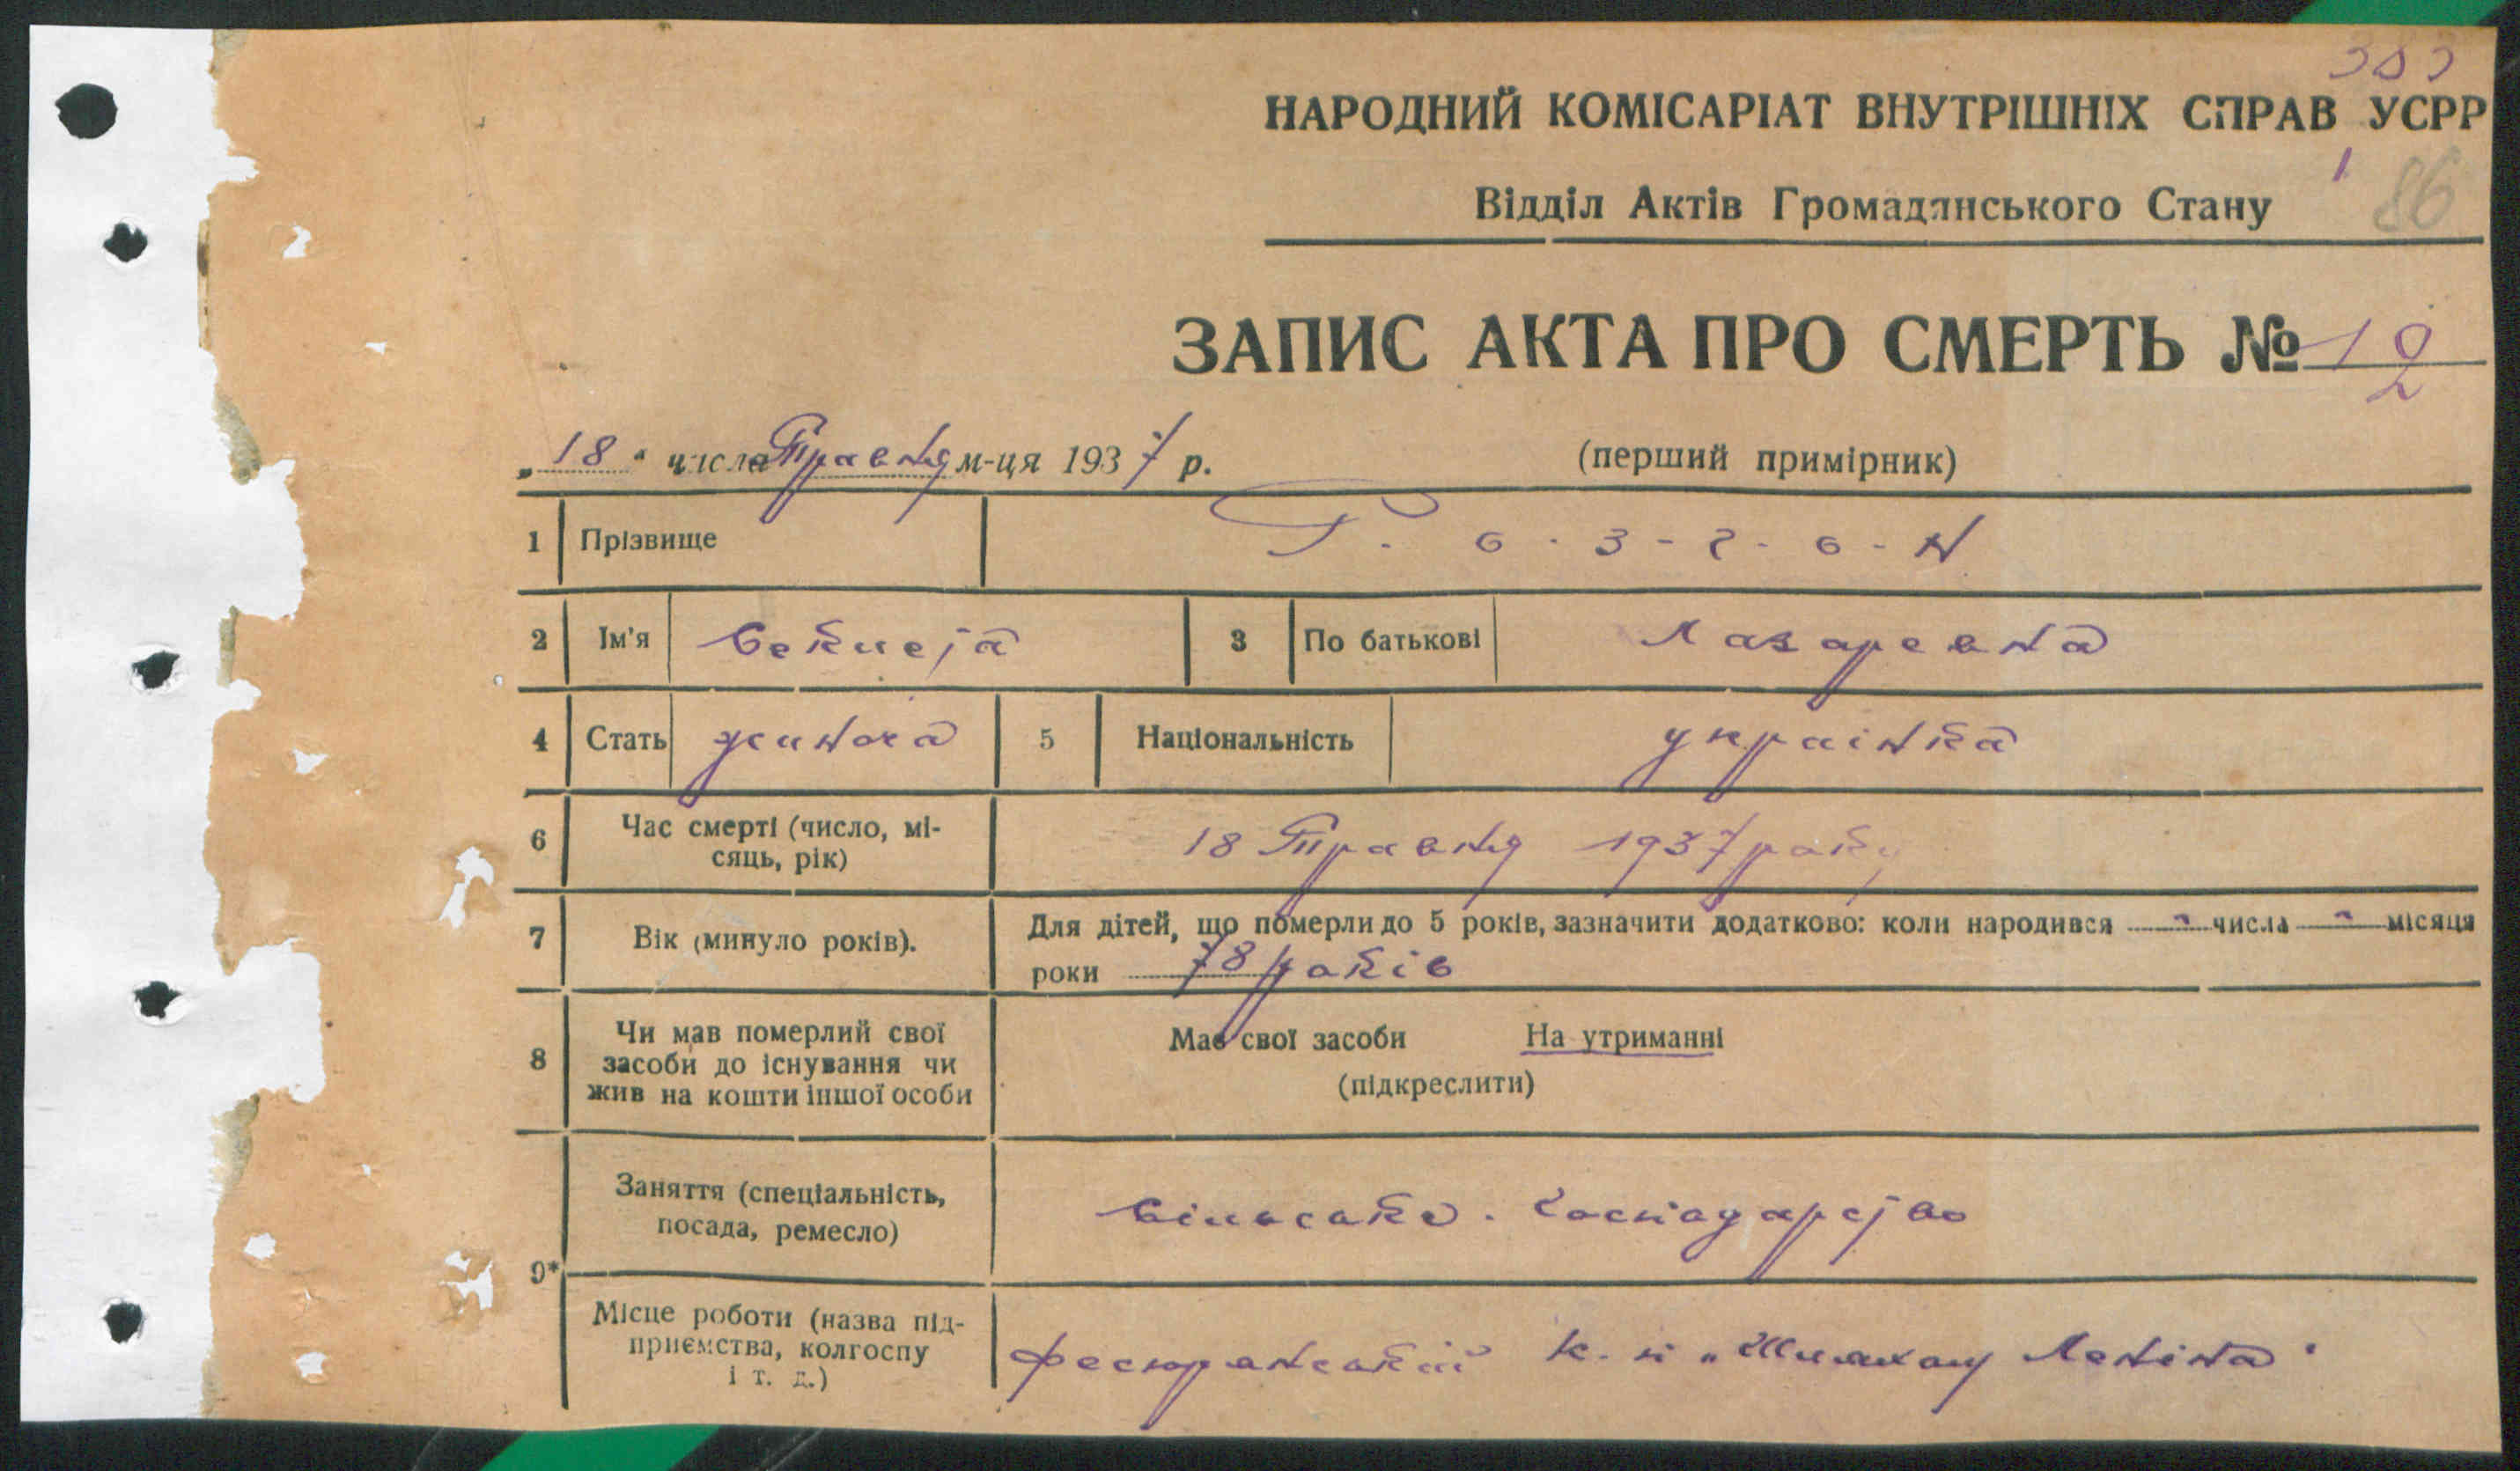 НАРОДНИЙ КОМІСАРІАТ ВНУТРІШНІХ СПРАВ УСРР
Відділ Актів Громадянського Стану 86
ЗАПИС АКТА ПРО СМЕРТЬ № 12
„18“ числа Травня м-ця 1937 р. (перший примірник)
1 Прізвище Г-о-з-г-о-н
2 Ім'я 3 По батькові Лазаревна
4 Стать жиноча 5 Національність українка
6 Час смерті (число, мі-
сяць, рік) 18 Травня 1937 року
7 Вік (минуло років). Для дітей, що померли до 5 років, зазначити додатково: коли народився - числа - місяця
роки 78 років
8 Чи мав померлий свої
засоби до існування чи
жив на кошти іншої особи
Має свої засоби На утриманні
(підкреслити)
9* Заняття (спеціальність,
посада, ремесло) Сільське. Господарство
Місце роботи (назва під-
приємства, колгоспу
і т. д.) к-п „Шляхом Леніна"